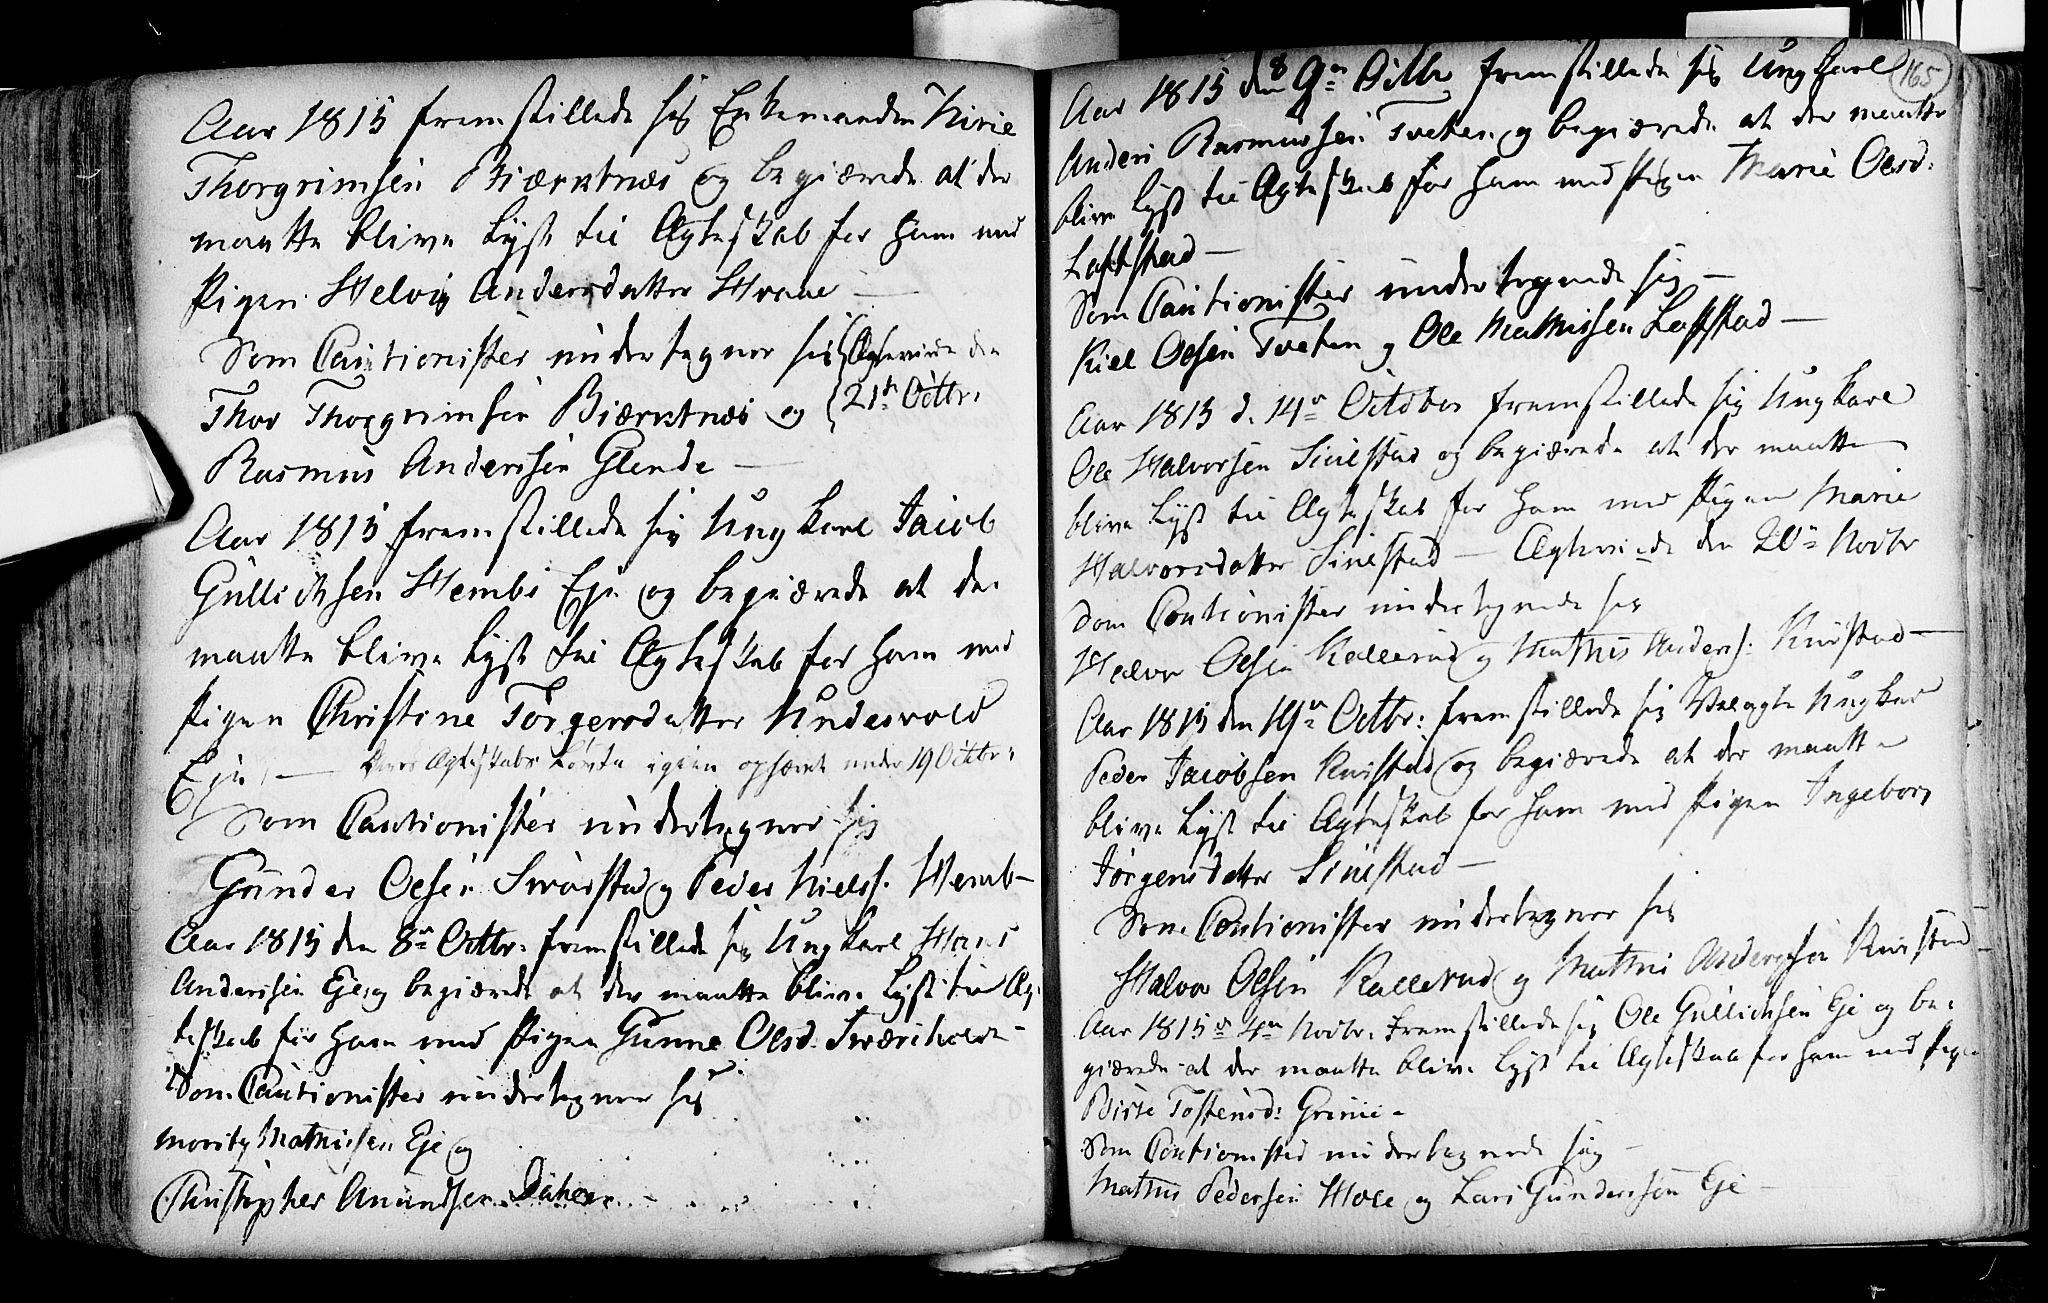 Aar 1815 fremstillede sig Enkemanden Kirie
Thorgrimsen Biærnnæs og begiærede at der
maatte blive Lyst til Ægteskab for ham med
Pigen Helvig Andersdatter Hvaae —
Som Cautionister undertegner sig
Ægteviede den
21de Octbr.
Thor Thorgrimsen og
Rasmus Andersen Glende —
Aar 1815 fremstillede sig Ungkarl Jacob
Gullichsen Hembs Eje og begiærede at der
maatte blive Lyst til Ægteskab for ham med
Pigen Christine Torgersdatter Undesvold
Eje, — Deres Ægteskabs igien ophævet under 19 Octbr:
Som Cautionister undertegner sig
Gunder Olsen Sworstad og Peder Nielss. Hemb —
Aar 1815 den 8de Octbr: fremstillede sig Ungkarl Hans
Andersen Eje og begiærede at der maatte blive Lyst til Æg-
teskab for ham med Pigen Gunne Olsd. Sværiholdt —
Som Cautionister undertegner sig
Moritz Mathisen Eje og
Christopher Amundsen
165
Aar 1815 den 8 9de Octbr fremstillede sig Ungkarl
Anders Rasmussen Tveten og begiærede at der maatte
blive Lyst til Ægteskab for ham med Pigen Marie Olsd:
Loftstad —
Som Cautionister undertegnede sig —
Kiel Olsen Tveten og Ole Mathisen Loftstad —
Aar 1815 d. 14de October fremstillede sig Ungkarl
Ole Halvorsen Siulstad og begiærede at der maatte
blive Lyst til Ægteskab for ham med Pigen Marie
Halvorsdatter Siulstad — Ægteviede den 20de Novbr
Som Cautionister undertegnede sig
Halvor Olsen Kallerud og Mathis Anders: Kiirstad —
Aar 1815 den 19de Octbr: fremstillede sig Velagte Ungkarl
Peder Jacobsen Kiirstad og begiærede at der maatte
blive Lyst til Ægteskab for ham med Pigen Ingeborg
Jørgensdatter Siulstad —
Som Cautionister undertegner sig
Halvor Olsen Kallerud og Mathis Andersen Kiirstad —
Aar 1815 d. 4de Novbr. fremstillede sig Ole Gullichsen Eje og be-
giærede at der maatte blive Lyst til Ægteskab for ham med Pigen
Birte Tostensd: Grimie —
Som Cautionister undertegnede sig —
Mathis Pedersen Hole og Lars Gundersen Eje —